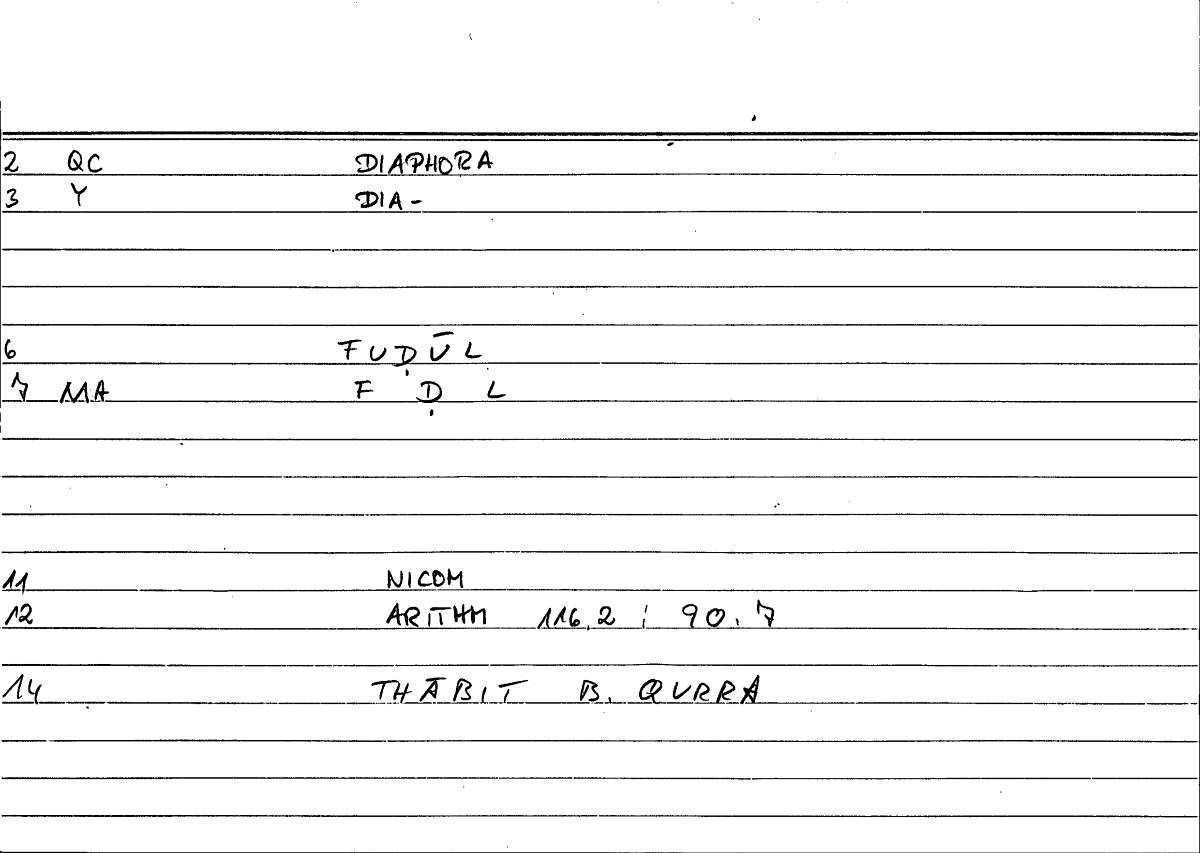 2 QC DIAPHORA
3 Y DIA-
6 FUḌŪL
7 MA F Ḍ L
11 NICOM
12 ARITHM 116.2 ; 90.7
14 THĀBIT B. QURRA